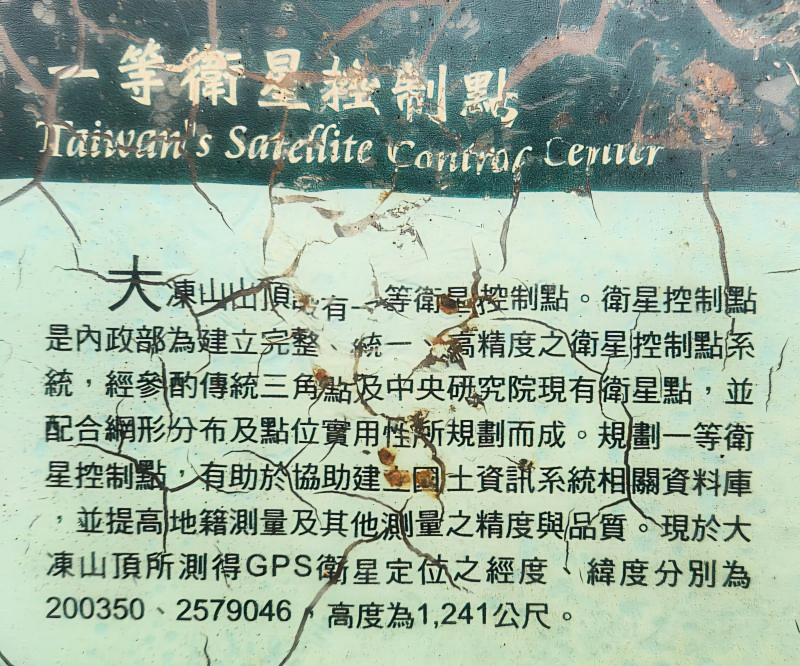 一等衛星控制點
Taiwan's Satellite Control Center
大凍山山頂設有一等衛星控制點。衛星控制點
是內政部為建立完整、統一、高精度之衛星控制點系
統，經參酌傳統三角點及中央研究院現有衛星點，並
配合網形分布及點位實用性所規劃而成。規劃一等衛
星控制點，有助於協助建立國土資訊系統相關資料庫
，並提高地籍測量及其他測量之精度與品質。現於大
凍山頂所測得GPS衛星定位之經度、緯度分別為
200350、2579046，高度為1,241公尺。